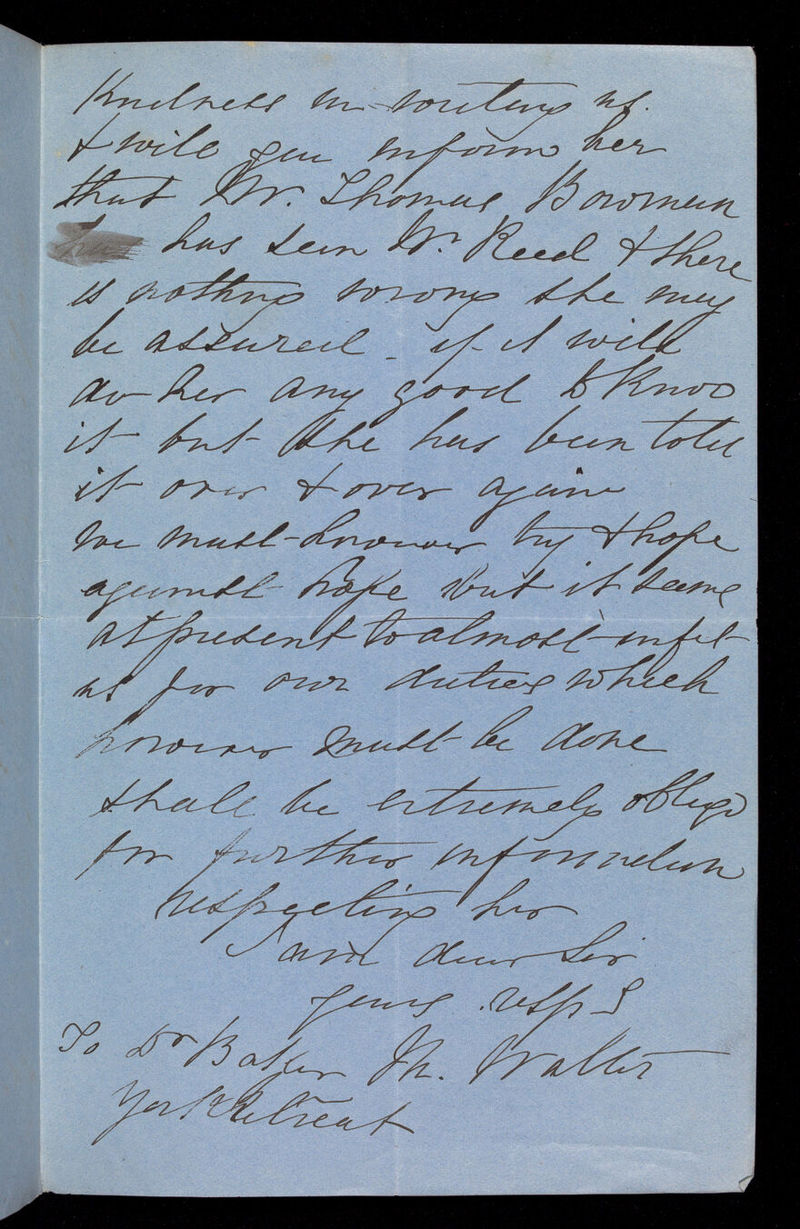 kindness in writing us.
& will you inform her
that Mr. Thomas Bowman
has seen Mr Reed & there
is nothing wrong she may
be assured - if it will
do her any good to know
it but she has been told
it over & over again
we must however try & hope
against hope but it seems
at present to almost unfit
us for our duties which
however must be done
shall be extremely obliged
for further information
respecting her
I am dear Sir
yours resp
To Dr Baker Th. Walter
York Retreat